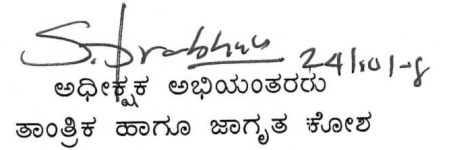 S. Prabhu
ಅಧೀಕ್ಷಕ ಅಭಿಯಂತರರು
ತಾಂತ್ರಿಕ ಹಾಗೂ ಜಾಗೃತ ಕೋಶ